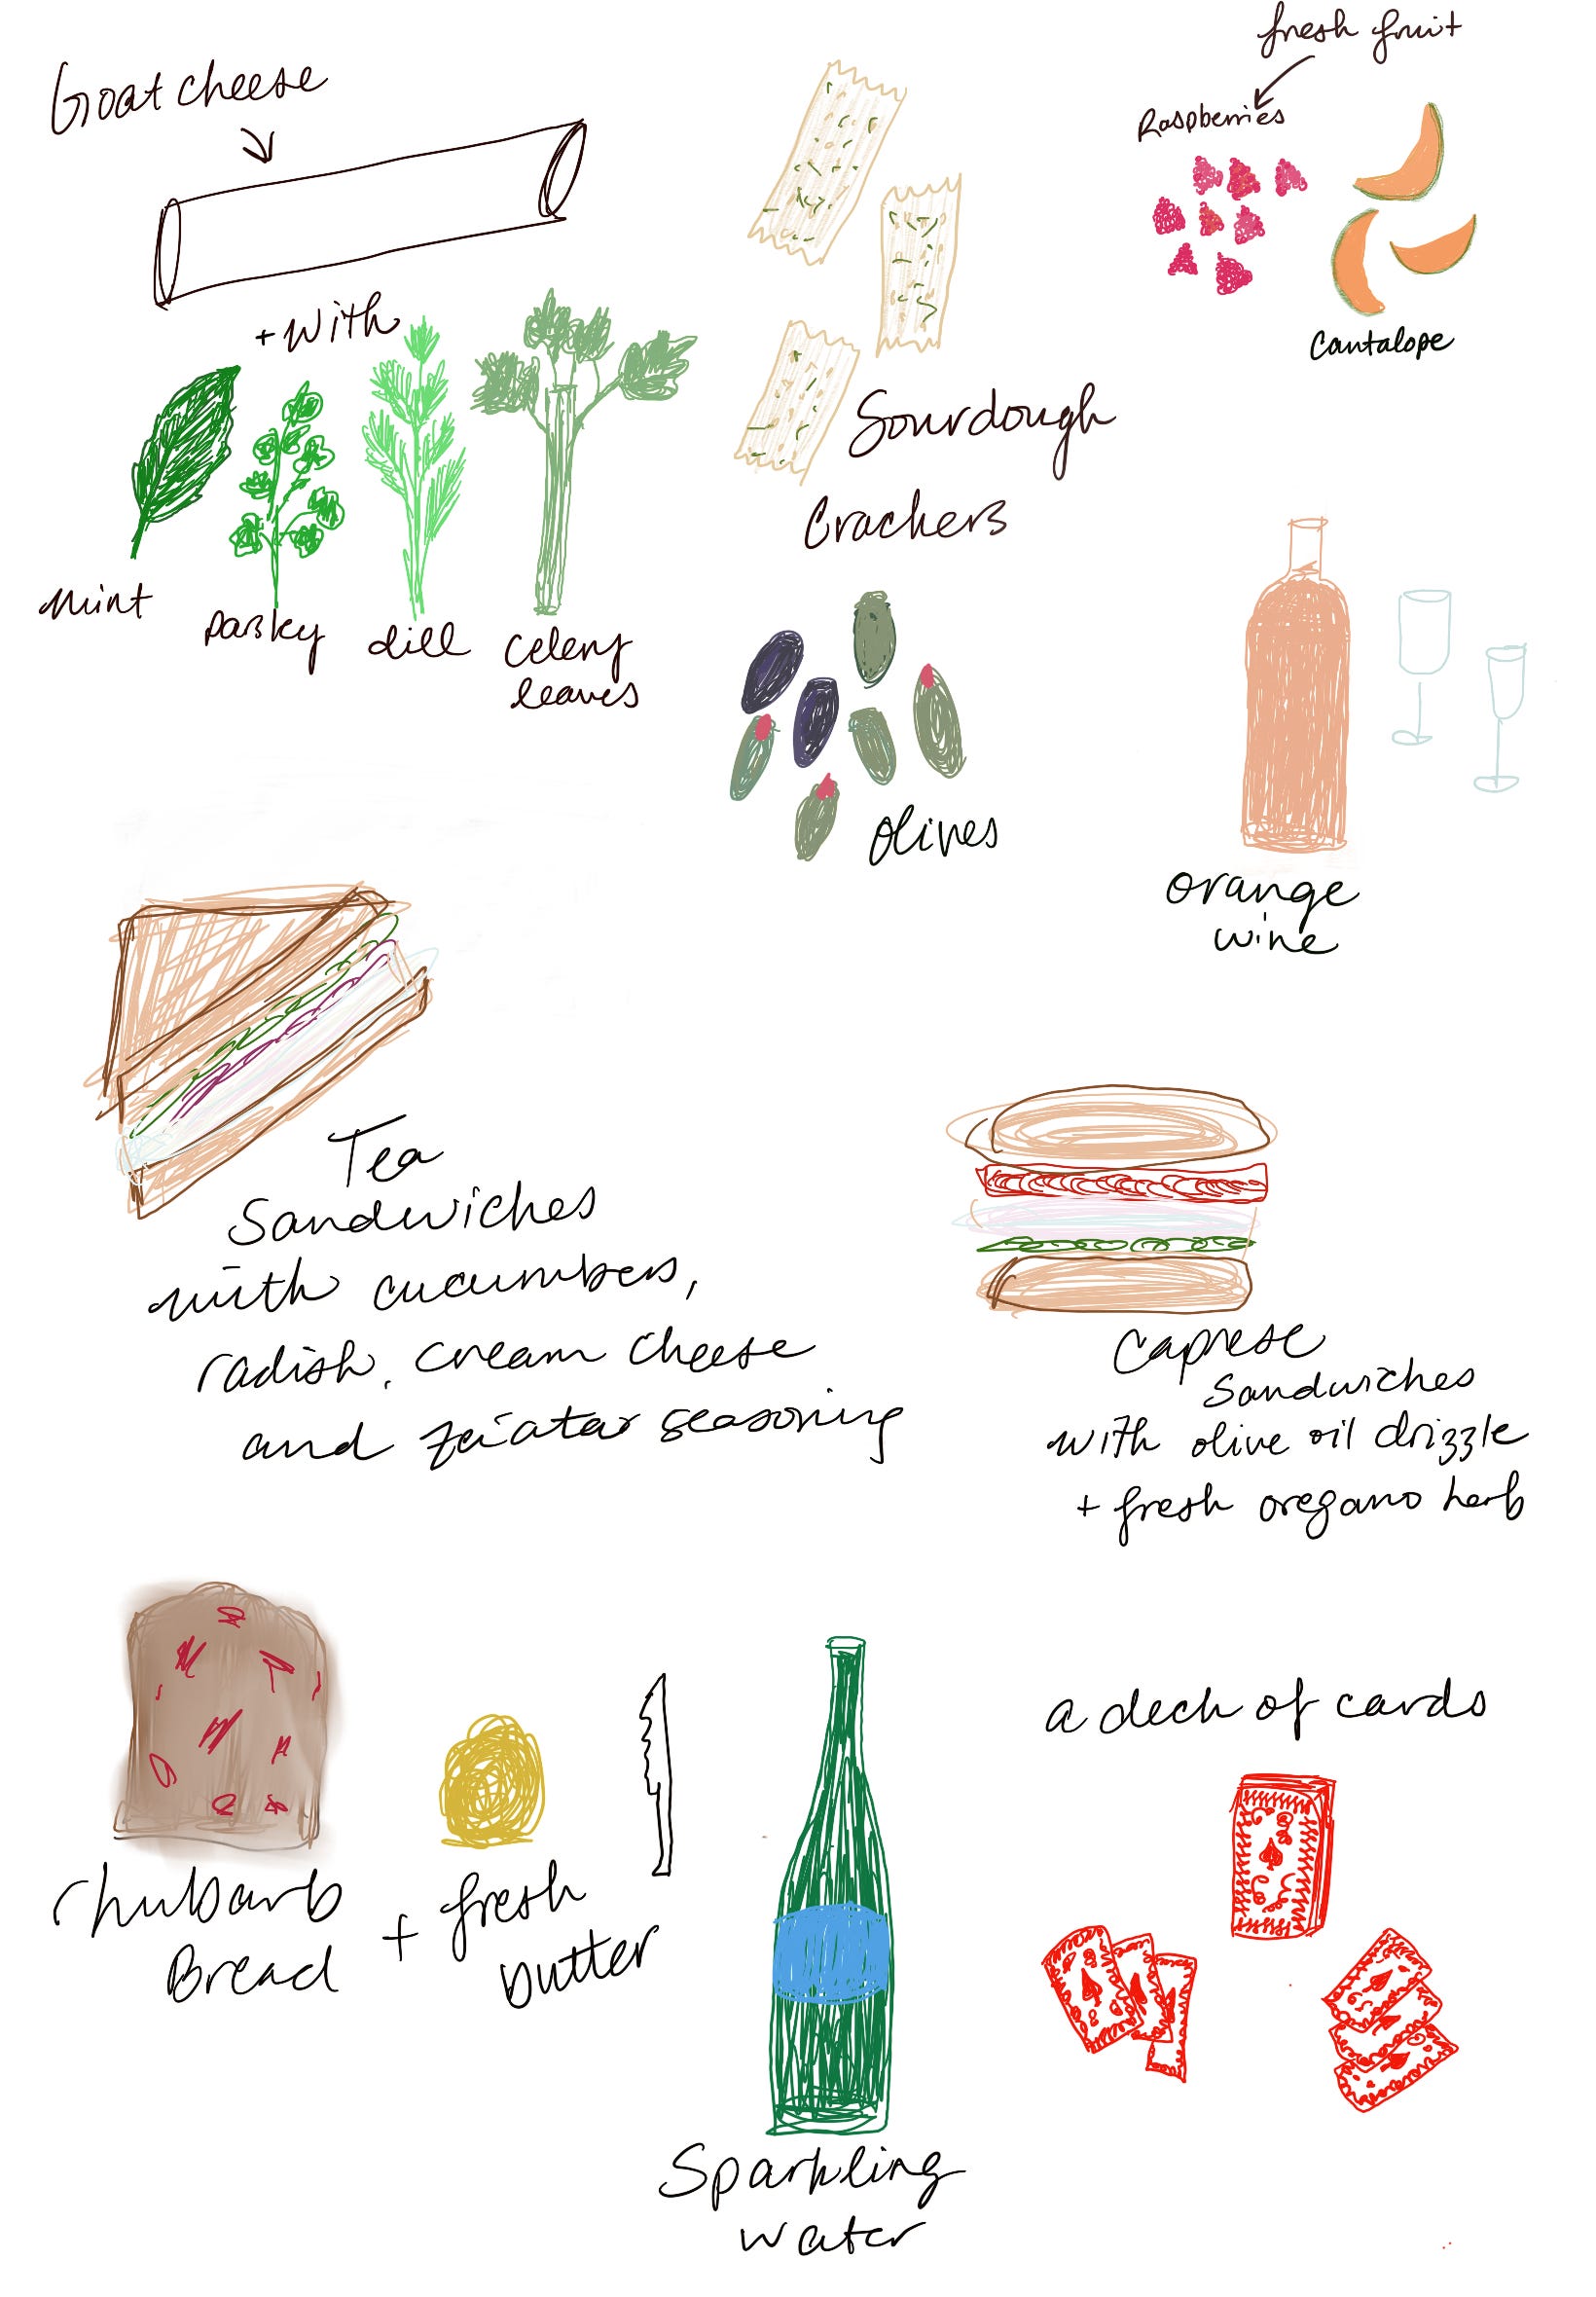 Goat cheese
+ with
mint
Parsley
dill
Celery
leaves
Sourdough
Crackers
fresh fruit
Raspberries
Cantalope
Olives
orange
wine
Tea
Sandwiches
with cucumbers,
radish, cream cheese
and zaiatar seasoning
Caprese
Sandwiches
with olive oil drizzle
+ fresh oregano herb
rhubarb
Bread
+ fresh
butter
Sparkling
water
a deck of cards